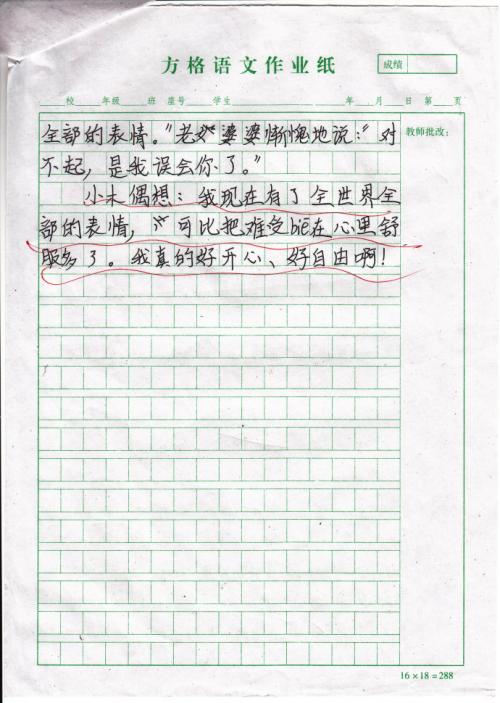 方格语文作业纸
成绩
校 年级 班 座号 学生 年 月 日 第 页
教师批改：
全部的表情。"老婆婆惭愧地说："对
不起，是我误会你了。"
小木偶想：我现在有了全世界全
部的表情，这可比把难受biē在心里舒
服多了。我真的好开心、好自由啊！
16×18=288